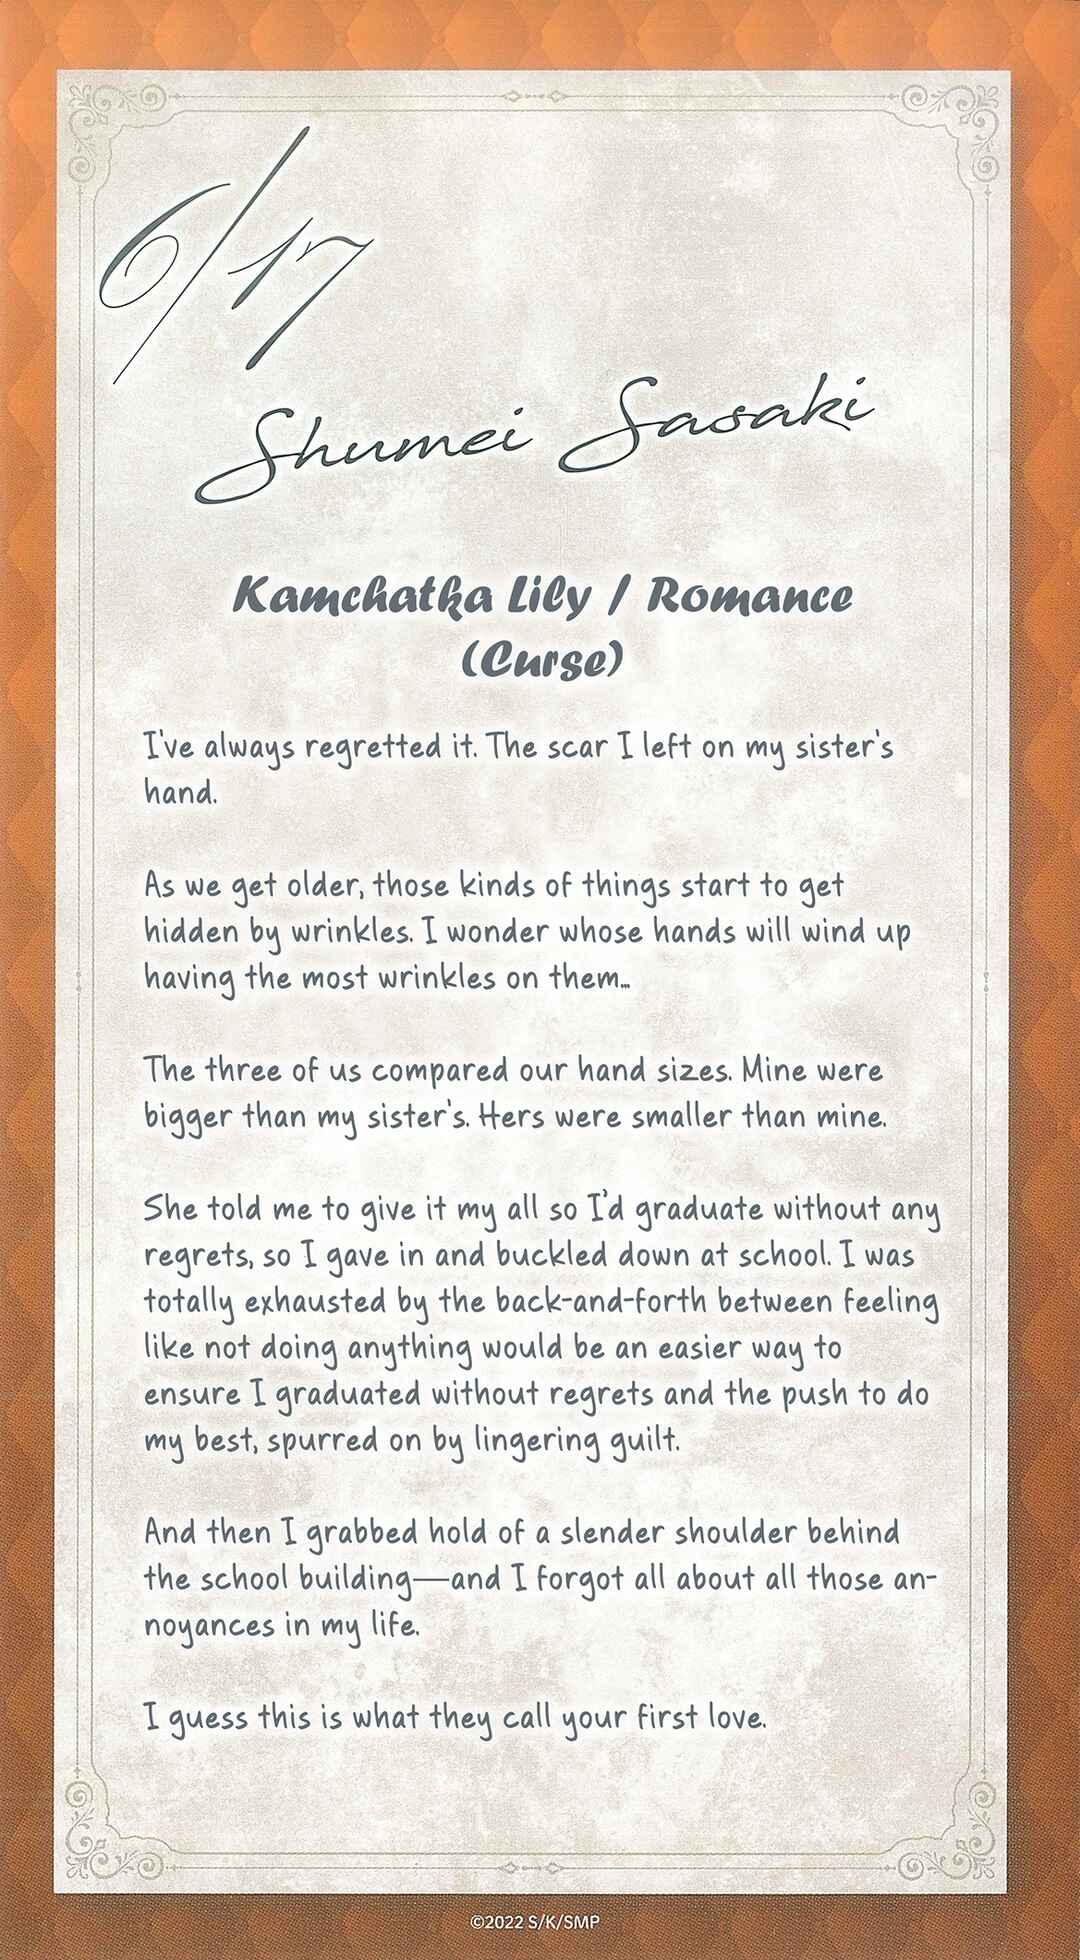 6/17
Shumei Sasaki
Kamchatka Lily / Romance
(Curse)
I've always regretted it. The scar I left on my sister's
hand.
As we get older, those kinds of things start to get
hidden by wrinkles. I wonder whose hands will wind up
having the most wrinkles on them...
The three of us compared our hand sizes. Mine were
bigger than my sister's. Hers were smaller than mine.
She told me to give it my all so I'd graduate without any
regrets, so I gave in and buckled down at school. I was
totally exhausted by the back-and-forth between feeling
like not doing anything would be an easier way to
ensure I graduated without regrets and the push to do
my best, spurred on by lingering guilt.
And then I grabbed hold of a slender shoulder behind
the school building—and I forgot all about all those an-
noyances in my life.
I guess this is what they call your first love.
©2022 S/K/SMP